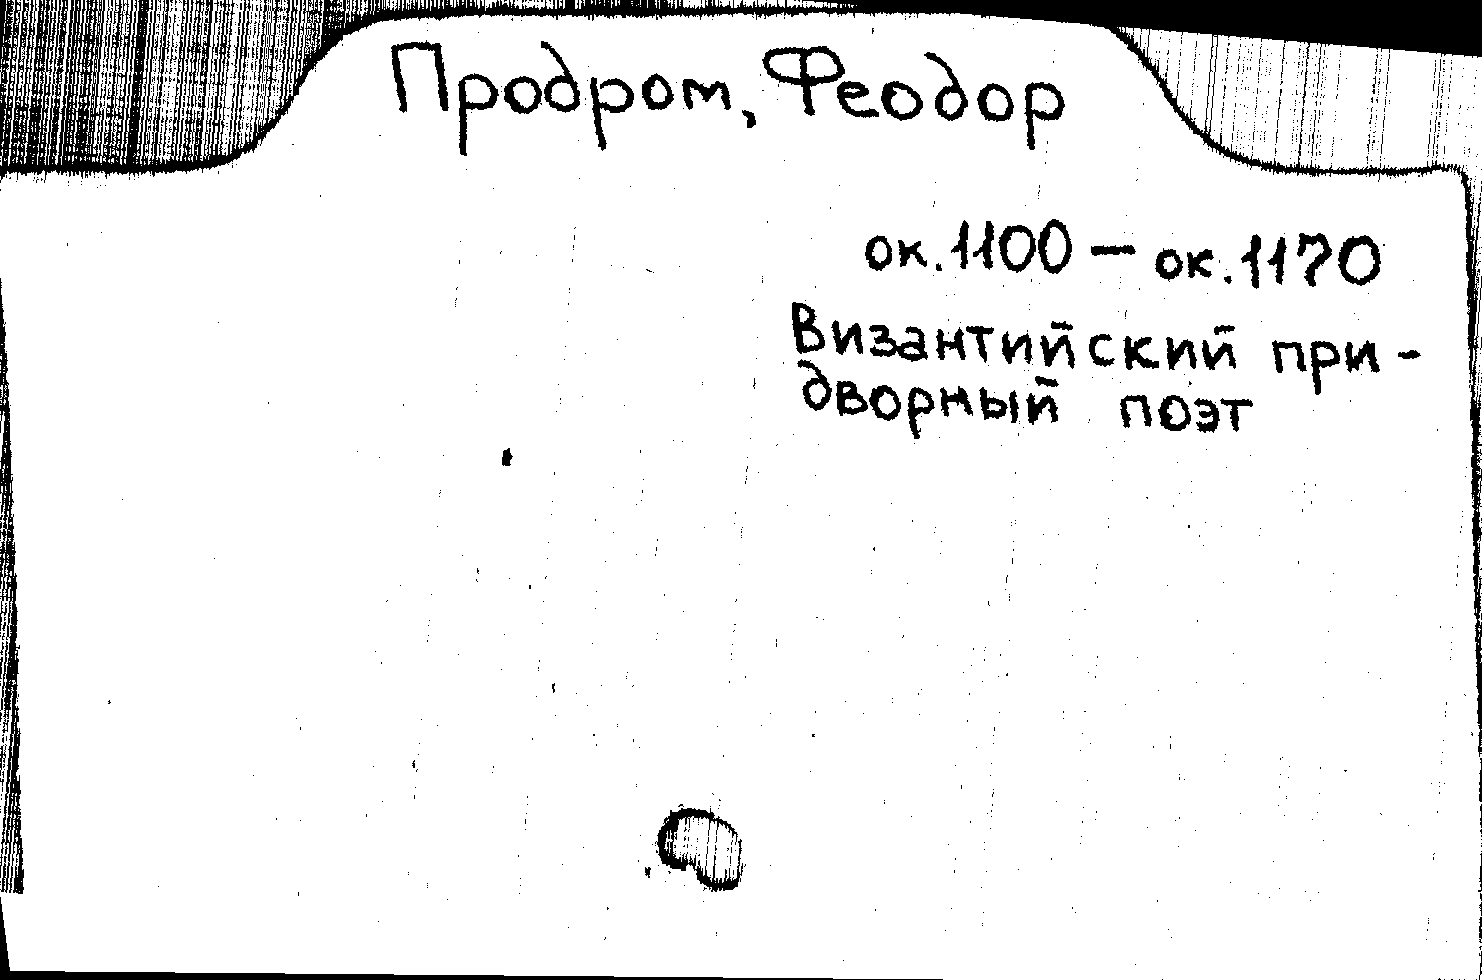 Продром, Феодор
ок. 1100 – ок. 1170
Византийский при-
дворный поэт